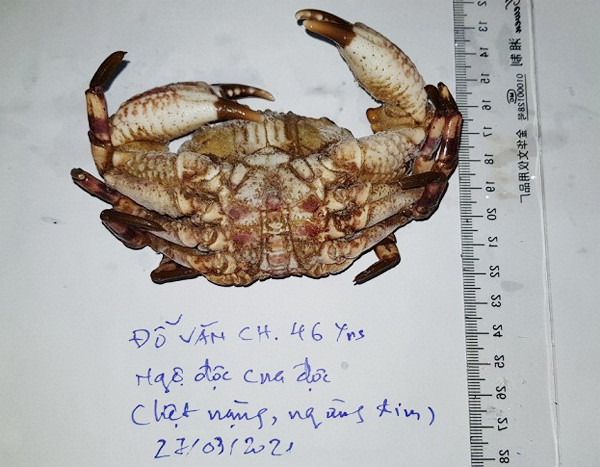 ĐỖ VĂN CH. 46 Yrs
Ngộ độc cua độc
(liệt nặng, ngừng tim)
27/03/2021
12 13 14 15 16 17 18 19 20 21 22 23 24 25 26 27 28